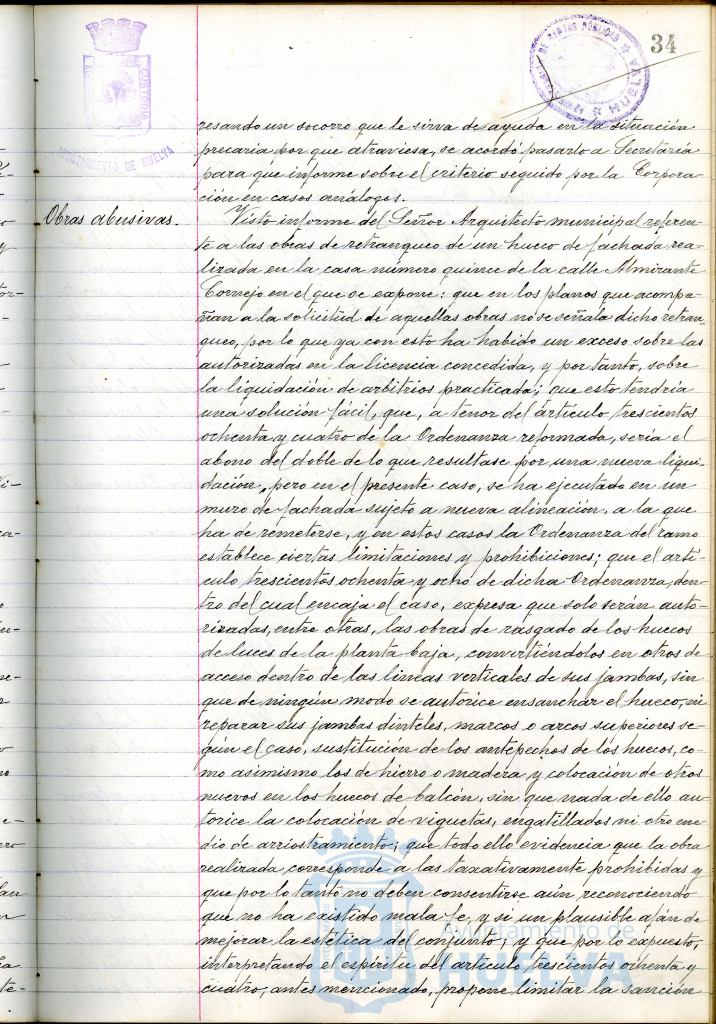 34
AYUNTAMIENTO DE HUELVA
resando un socorro que le sirva de ayuda en la situación
precaria por que atraviesa, se acordó pasarlo a Secretaría
para que informe sobre el criterio seguido por la Corpora-
ción en casos análogos.
Obras abusivas.
Visto informe del Señor Arquitecto municipal referen-
te a las obras de retranqueo de un hueco de fachada rea-
lizada en la casa número quince de la calle Almirante
Cornejo en el que se expone: que en los planos que acompa-
ñan a la solicitud de aquellas obras no se señala dicho retran-
queo, por lo que ya con esto ha habido un exceso sobre las
autorizadas en la licencia concedida, y por tanto, sobre
la liquidación de arbitrios practicada; que esto tendría
una solución fácil, que, a tenor del artículo trescientos
ochenta y cuatro de la Ordenanza reformada, sería el
abono del doble de lo que resultase por una nueva liqui-
dación, pero en el presente caso, se ha ejecutado en un
muro de fachada sujeto a nueva alineación, a la que
ha de remeterse, y en estos casos la Ordenanza del ramo
establece ciertas limitaciones y prohibiciones; que el artí-
culo trescientos ochenta y ocho de dicha Ordenanza, den-
tro del cual encaja el caso, expresa que solo serán auto-
rizadas, entre otras, las obras de rasgado de los huecos
de luces de la planta baja, convirtiéndolos en otros de
acceso dentro de las lineas verticales de sus jambas, sin
que de ningún modo se autorice ensanchar el hueco, ni
reparar sus jambas dinteles, marcos o arcos superiores se-
gún el caso, sustitución de los antepechos de los huecos, co-
mo asimismo los de hierro o madera y colocación de otros
nuevos en los huecos de balcón, sin que nada de ello au-
torice la colocación de viguetas, engatillados ni otro me-
dio de arriostramiento; que todo ello evidencia que la obra
realizada corresponde a las taxativamente prohibidas y
que por lo tanto no deben consentirse aún reconociendo
que no ha existido mala fe, y si un plausible afán de
mejorar la estética del conjunto; y que por lo expuesto,
interpretando el espiritu del artículo trescientos ochenta y
cuatro, antes mencionado, propone limitar la sanción
Ayuntamiento de
HUELVA